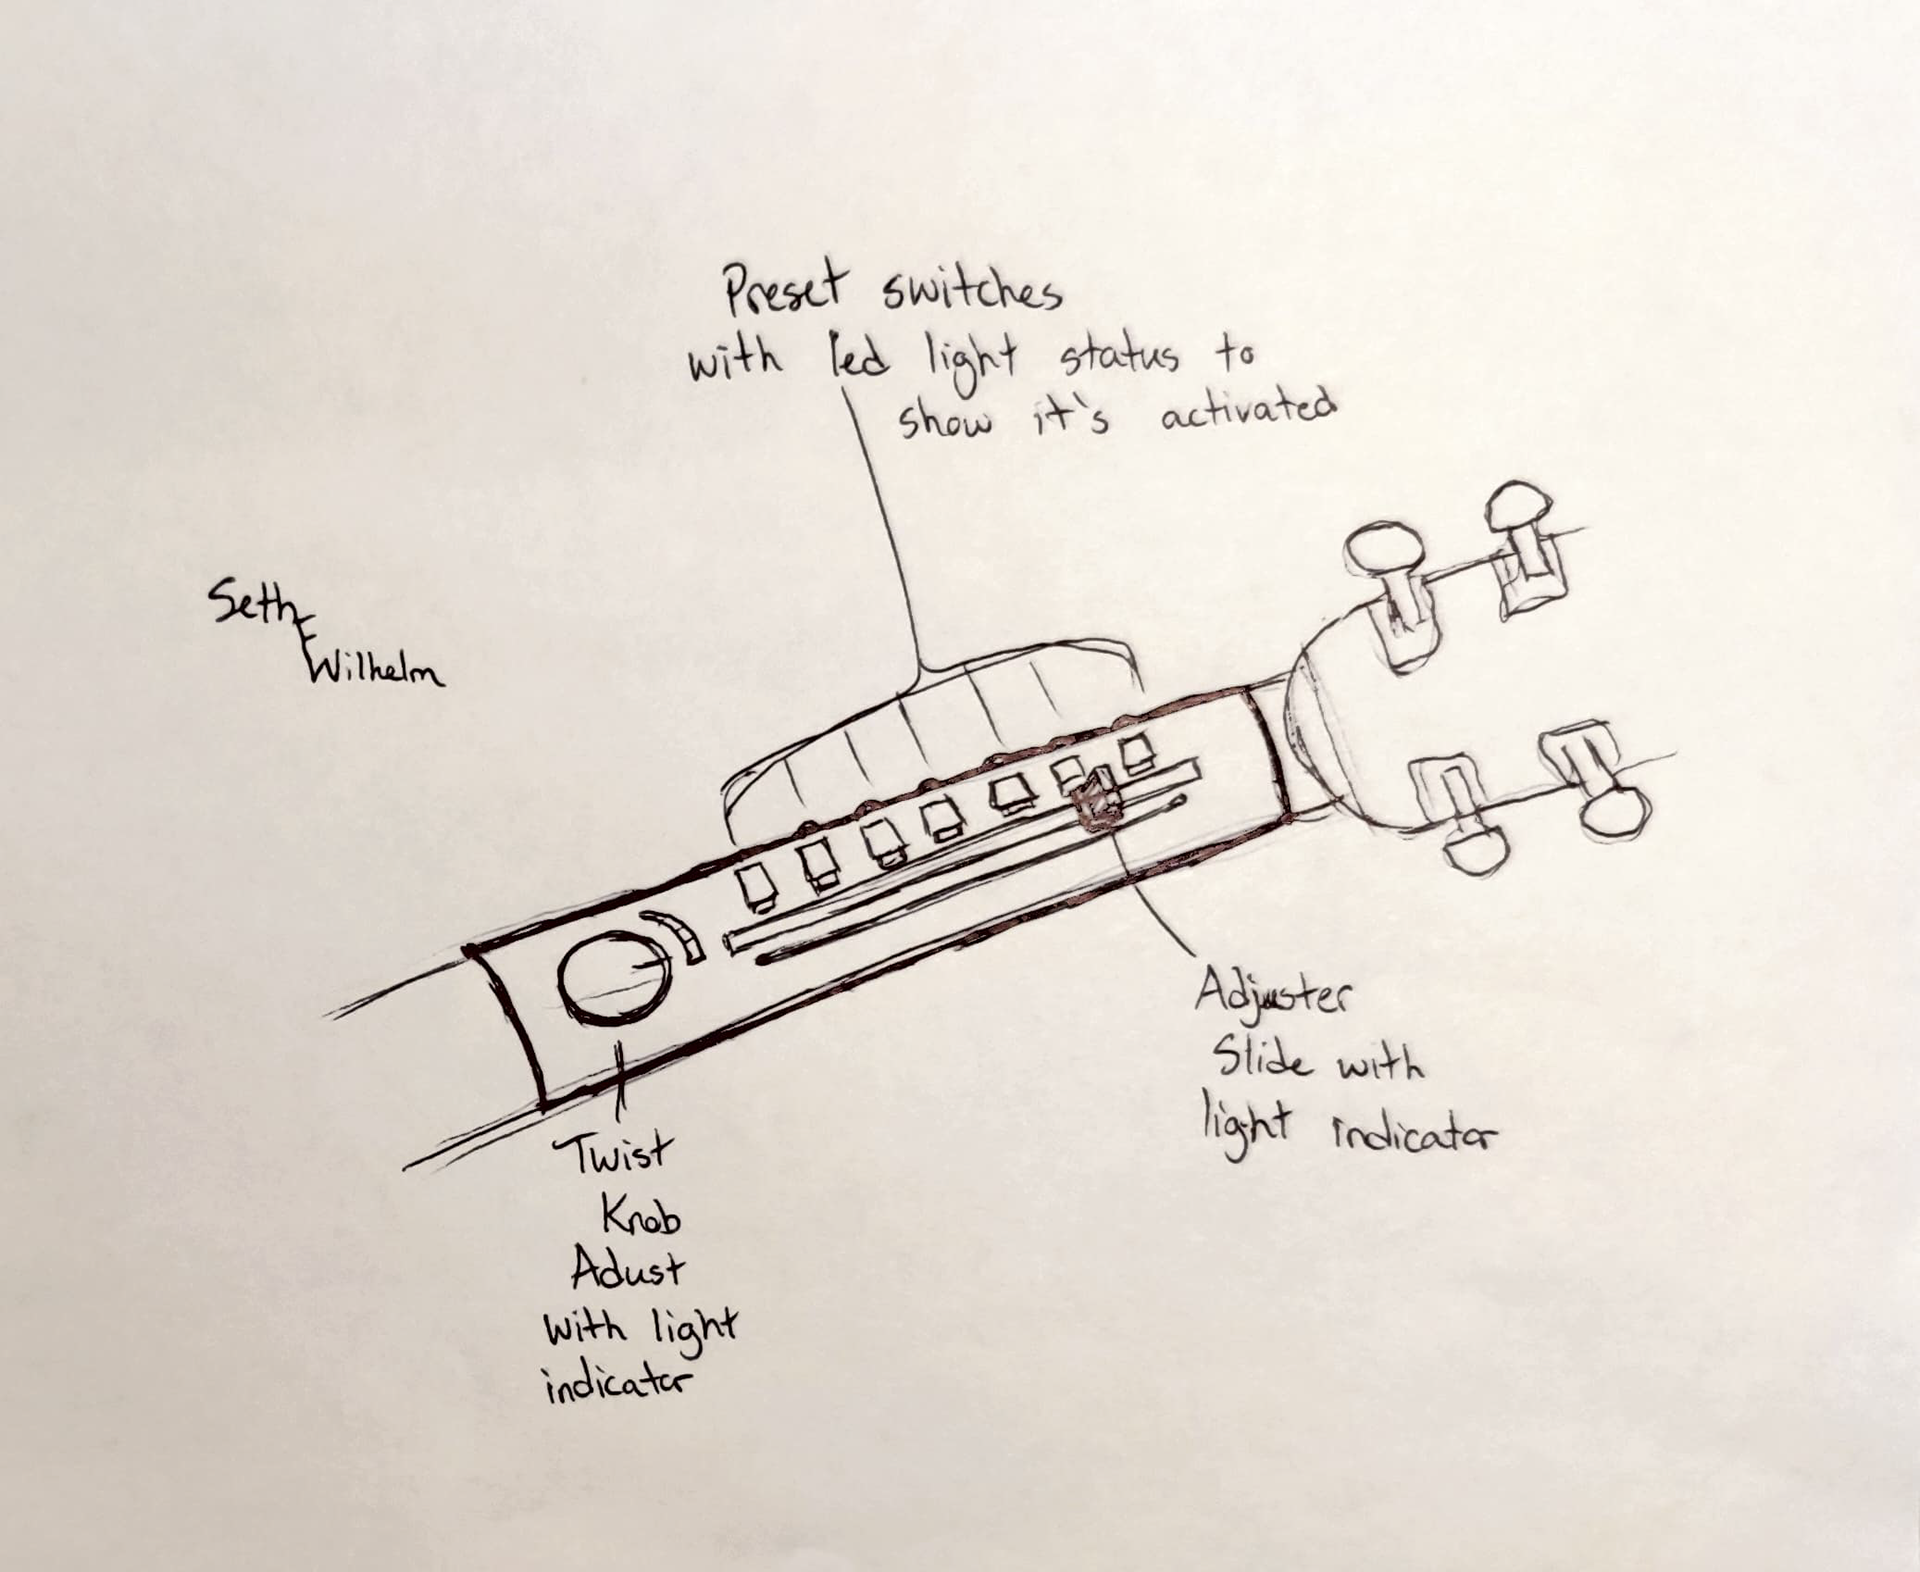 Preset switches
with led light status to
show it's activated
Seth
E
Wilhelm
Adjuster
Slide with
light indicator
Twist
Knob
Adust
with light
indicator